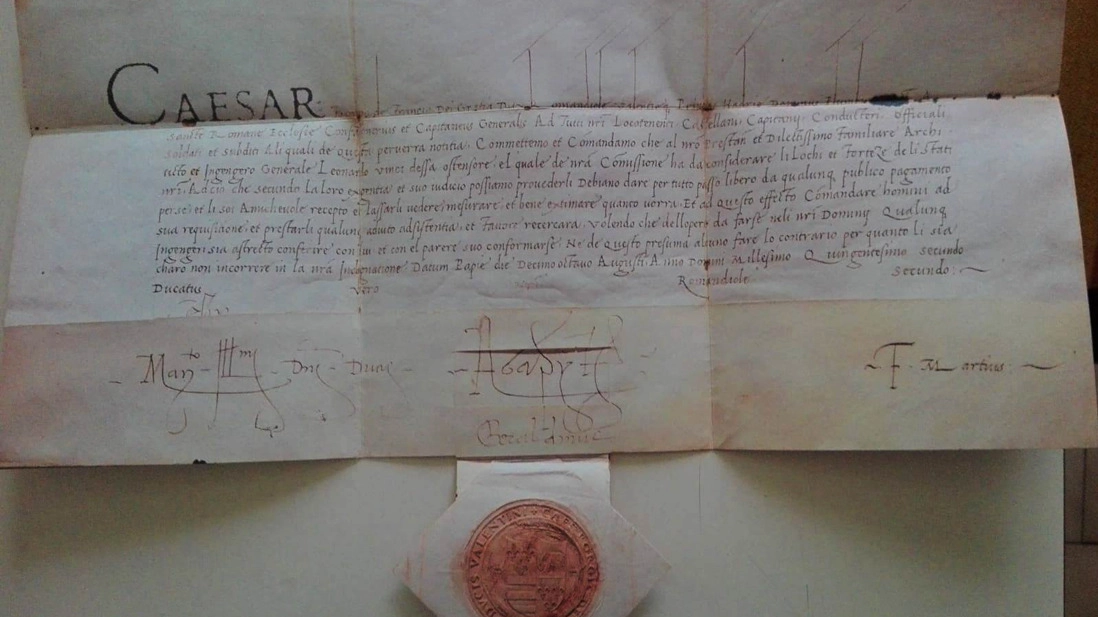 CAESAR Francia Dei Gratia Dux Romandiole Valentieq Princeps Hadrie Dominus
Sancte Romane Ecclesie Confalonerius et Capitaneus Generalis Ad Tutti nri Locotenenti Castellani Capitanij Conducteri Officiali
Soldati et Subditi Ali quali de questa perverra notitia. Commettemo et Comandamo che al nro Prestan et Dilectissimo Familiare Archi
tecto et Ingengero Generale Leonardo vinci dessa ostensore el quale de nra Comissione ha da considerare li Lochi et Forteze de li Stati
nri. Adcio che secundo la loro exigentia et suo iudicio possiamo provederli Debiano dare per tutto passo libero da qualunq publico pagamento
per se et li soi Amichevole recepto et lassarli vedere mesurare et bene extimare quanto vorra. Et ad questo effecto Comandare homini ad
sua requisitione et prestarli qualunq aiuto adsistentia et Favore recercara. Volendo che dellopere da farse neli nri Dominij Qualunq
Ingengeri sia astrecto conferire con lui et con el parere suo conformarse Ne de questo presuma alcuno fare lo contrario per quanto li sia
charo non incorrere in la nra Indignatione Datum Papie die Decimo octavo Augusti Anno Domini Millesimo Quingentesimo secundo
Ducatus vero Romandiole secundo:
Man to Ill mi Dni Ducis Agapytus F. Martius:
DVCIS VALENTIN